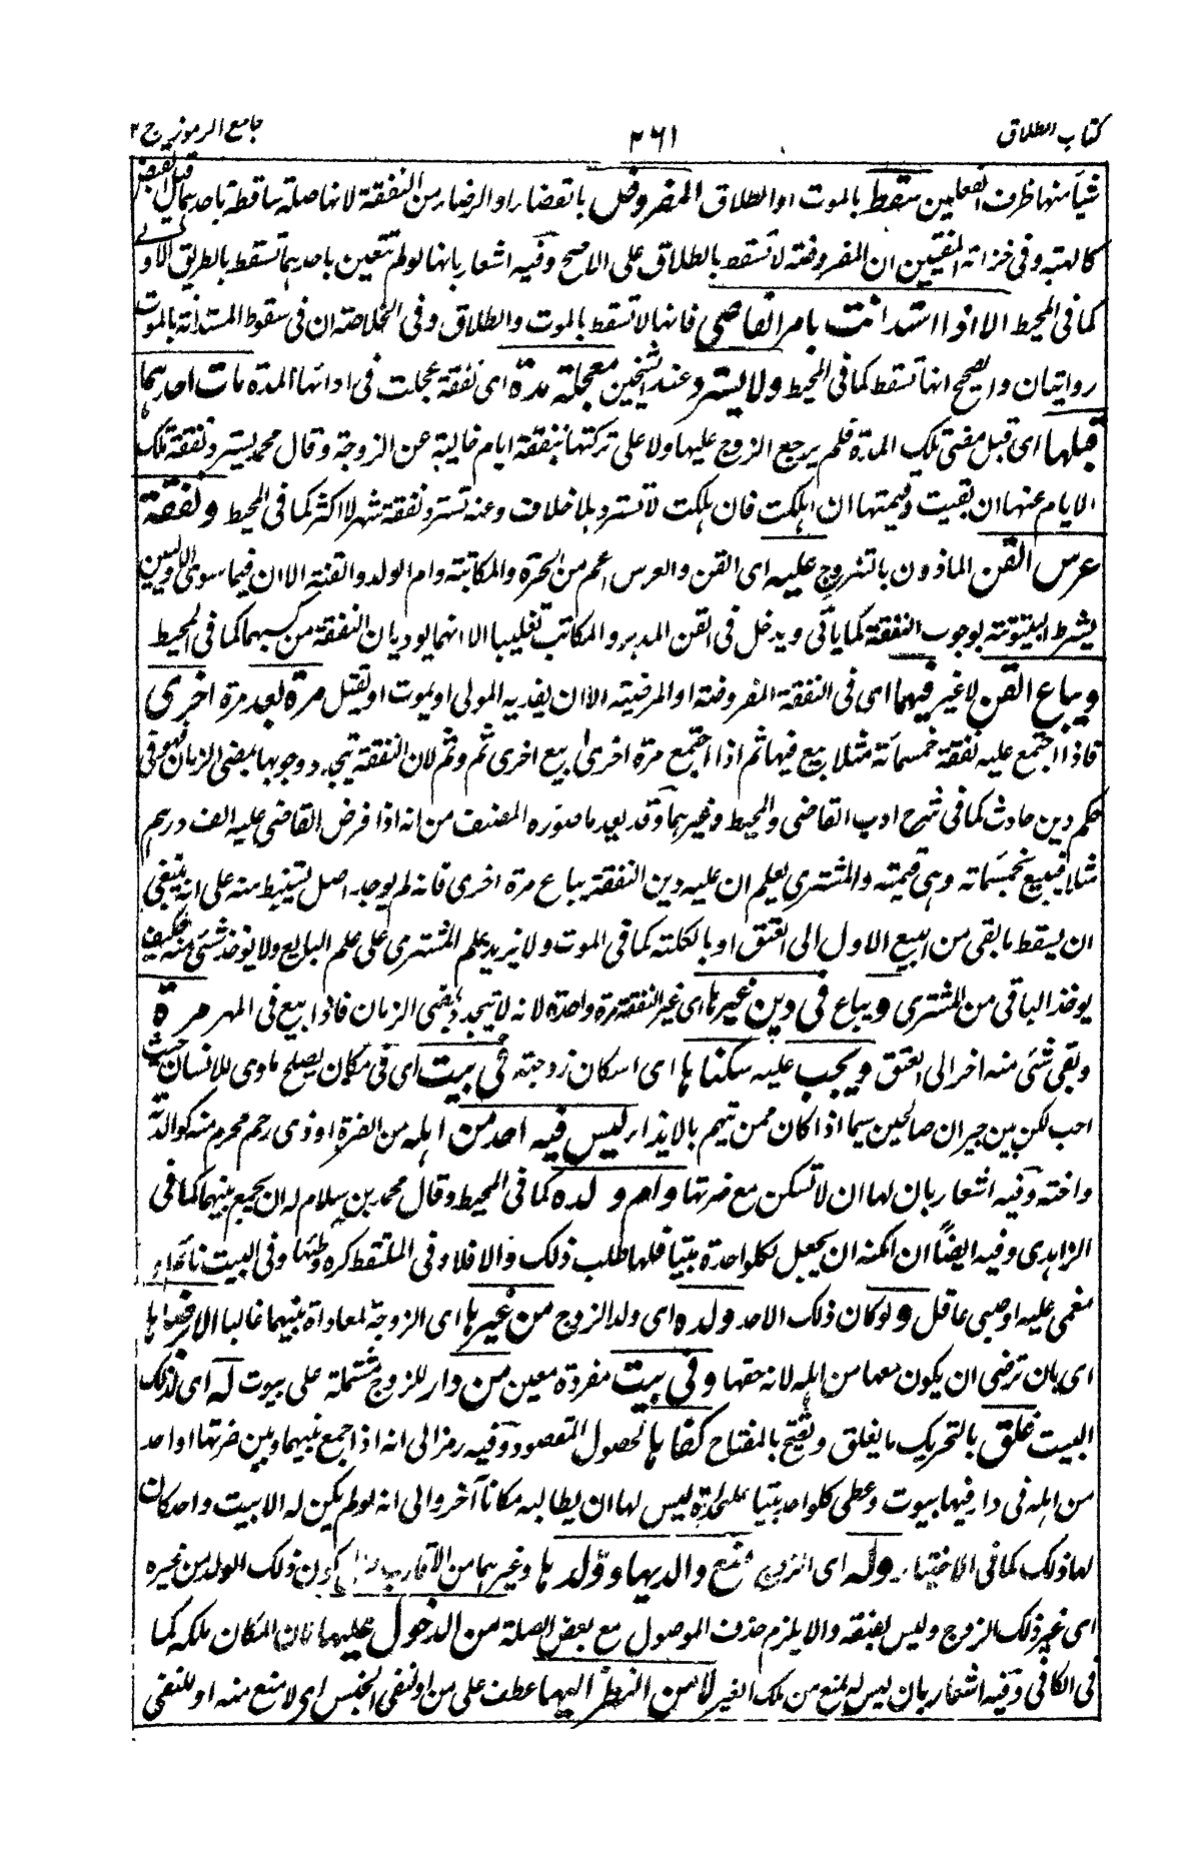 كتاب الطلاق
٢٦١
جامع الرموز ج ٢
شيأ منها ظرف الفعلين سقط بالموت او الطلاق المفروض بالقضاء او الرضاء من النفقة لانها صلة ساقطة باحدهما قبل القبض
كالهبة وفى خزانة المفتيين ان المفروضة لا تسقط بالطلاق على الاصح وفيه اشعار بانها لو لم تتعين باحدهما تسقط بالطريق الاولى
كما فى المحيط الا اذا استدانت بامر القاضى فانها لا تسقط بالموت والطلاق وفى الخلاصة ان فى سقوط المستدانة بالموت
روايتان والصحيح انها تسقط كما فى المحيط ولا يسترد عند الشيخين معجلة مدة اى نفقة عجلت فى ادائها المدة مات احدهما
قبلها اى قبل مضى تلك المدة فلم يرجع الزوج عليها ولا على تركتها بنفقة ايام خالية عن الزوجة وقال محمد يسترد نفقة تلك
الايام عنها ان بقيت وقيمتها ان اهلكت فان هلكت لا تسترد بلا خلاف وعنه تسترد نفقة شهر لا اكثر كما فى المحيط ونفقة
عرس القن الماذون بالتزوج عليه اى القن والعرس اعم من الحرة والمكاتبة وام الولد والقنة الا ان فيما سوى الاوليين
يشترط البيتوتة لوجوب النفقة كما ياتى ويدخل فى القن المدبر والمكاتب تغليبا الا انهما يوديان النفقة من كسبهما كما فى المحيط
ويباع القن لا غير فيهما اى فى النفقة المفروضة او المرضية الا ان يفديه المولى او يموت او يقتل مرة بعد مرة اخرى
فاذا اجتمع عليه نفقة خمسمائة مثلا بيع فيها ثم اذا اجتمع مرة اخرى بيع اخرى ثم وثم لان النفقة يتجدد وجوبها بمضى الزمان فهو فى
حكم دين حادث كما فى شرح ادب القاضى والمحيط وغيرهما وقد بعد ما صوره المصنف من انه اذا فرض القاضى عليه الف درهم
مثلا فبيع بخمسمائة وهى قيمته والمشترى يعلم ان عليه دين النفقة يباع مرة اخرى فانه لم يوجد اصل يستنبط منه على انه ينبغى
ان يسقط ما بقى من البيع الاول الى العتق او بالكلية كما فى الموت ولا يزيد علم المشترى على علم البايع ولا يوخذ شئ منه فكيف
يوخذ الباقى من المشترى ويباع فى دين غيرها اى غير النفقة مرة واحدة لانه لا يتجدد بمضى الزمان فاذا بيع فى المهر مرة
وبقى شئ منه اخر الى العتق ويجب عليه سكناها اى اسكان زوجته فى بيت اى فى مكان يصلح ماوى للانسان حيث
احب لكن بين جيران صالحين سيما اذا كان ممن تيهم بالايذاء ليس فيه احد من اهله من الضرة او ذى رحم محرم منه كوالدته
واخته وفيه اشعار بان لها ان لا تسكن مع ضرتها وام ولده كما فى المحيط وقال محمد بن سلام له ان يجمع بينهما كما فى
الزاهدى وفيه ايضاً ان امكنه ان يجعل لكل واحدة بيتا فلها طلب ذلك والا فلا وفى الملتقط كره وطئها وفى البيت نائم او
مغمى عليه او صبى عاقل ولو كان ذلك الاحد ولده اى ولد الزوج من غيرها اى الزوجة لمعاداة بينهما غالبا الا برضاها
اى بان ترضى ان يكون معها من اهله لانه حقها وفى بيت مفردة معين من دار للزوج مشتملة على بيوت له اى لذلك
البيت غلق بالتحريك ما يغلق ويفتح بالمفتاح كفاها لحصول المقصود وفيه رمز الى انه اذا جمع بينهما وبين ضرتها او احد
من اهله فى دار فيها بيوت واعطى كل واحد بيتا على حدة ليس لها ان يطالبه مكانا آخر والى انه لو لم يكن له الا بيت واحد كان
لها ذلك كما فى الاختيار وله اى الزوج منع والديها وولدها وغيرهما من الاقارب كون ذلك الولد من غيره
اى غير ذلك الزوج وليس بصفته والا يلزم حذف الموصول مع بعض الصلة من الدخول عليها فان المكان ملكه كما
فى الكافى وفيه اشعار بان ليس له المنع من ملك الغير لا من النظر اليها عطف على من او لنفى الجنس اى لا منع منه او للنفى